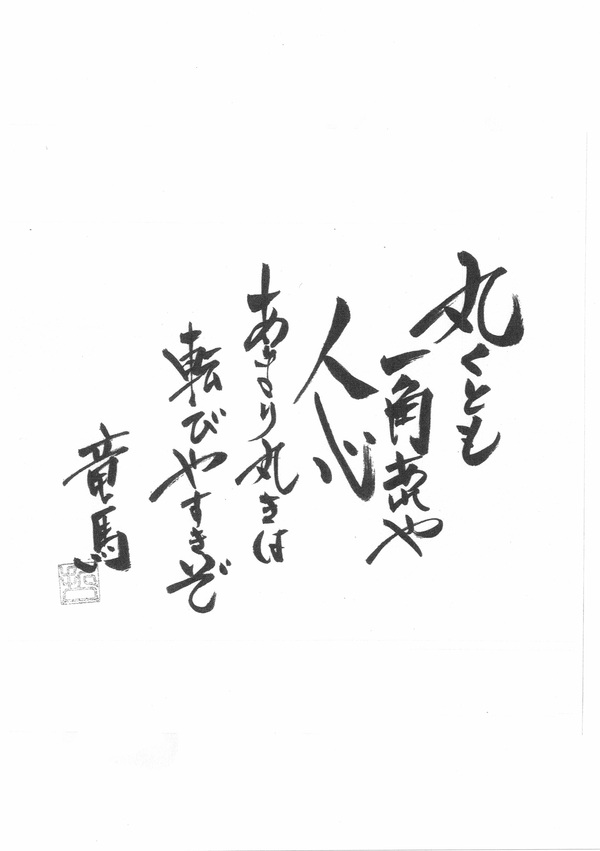 丸くとも
一角あれや
人心
あまり丸きは
転びやすきぞ
竜馬